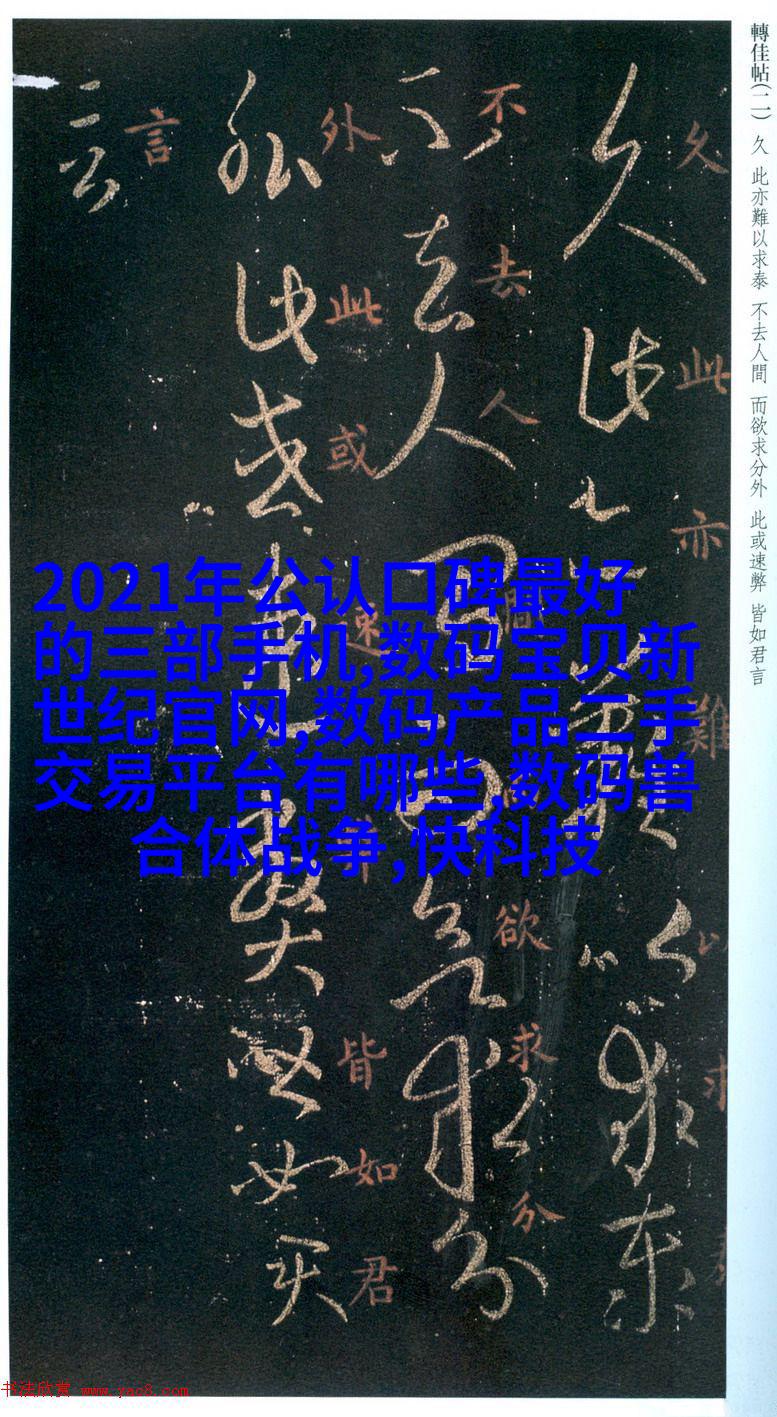 轉佳帖(二) 久 此亦難以求泰 不去人間 而欲求分外 此或速弊 皆如君言
久此亦難以求
不去人間欲求分
外此或速皆如君
言
2021年公认口碑最好
的三部手机,数码宝贝新
世纪官网,数码产品二手
交易平台有哪些,数码兽
合体战争,快科技
书法欣赏 www.yac8.com